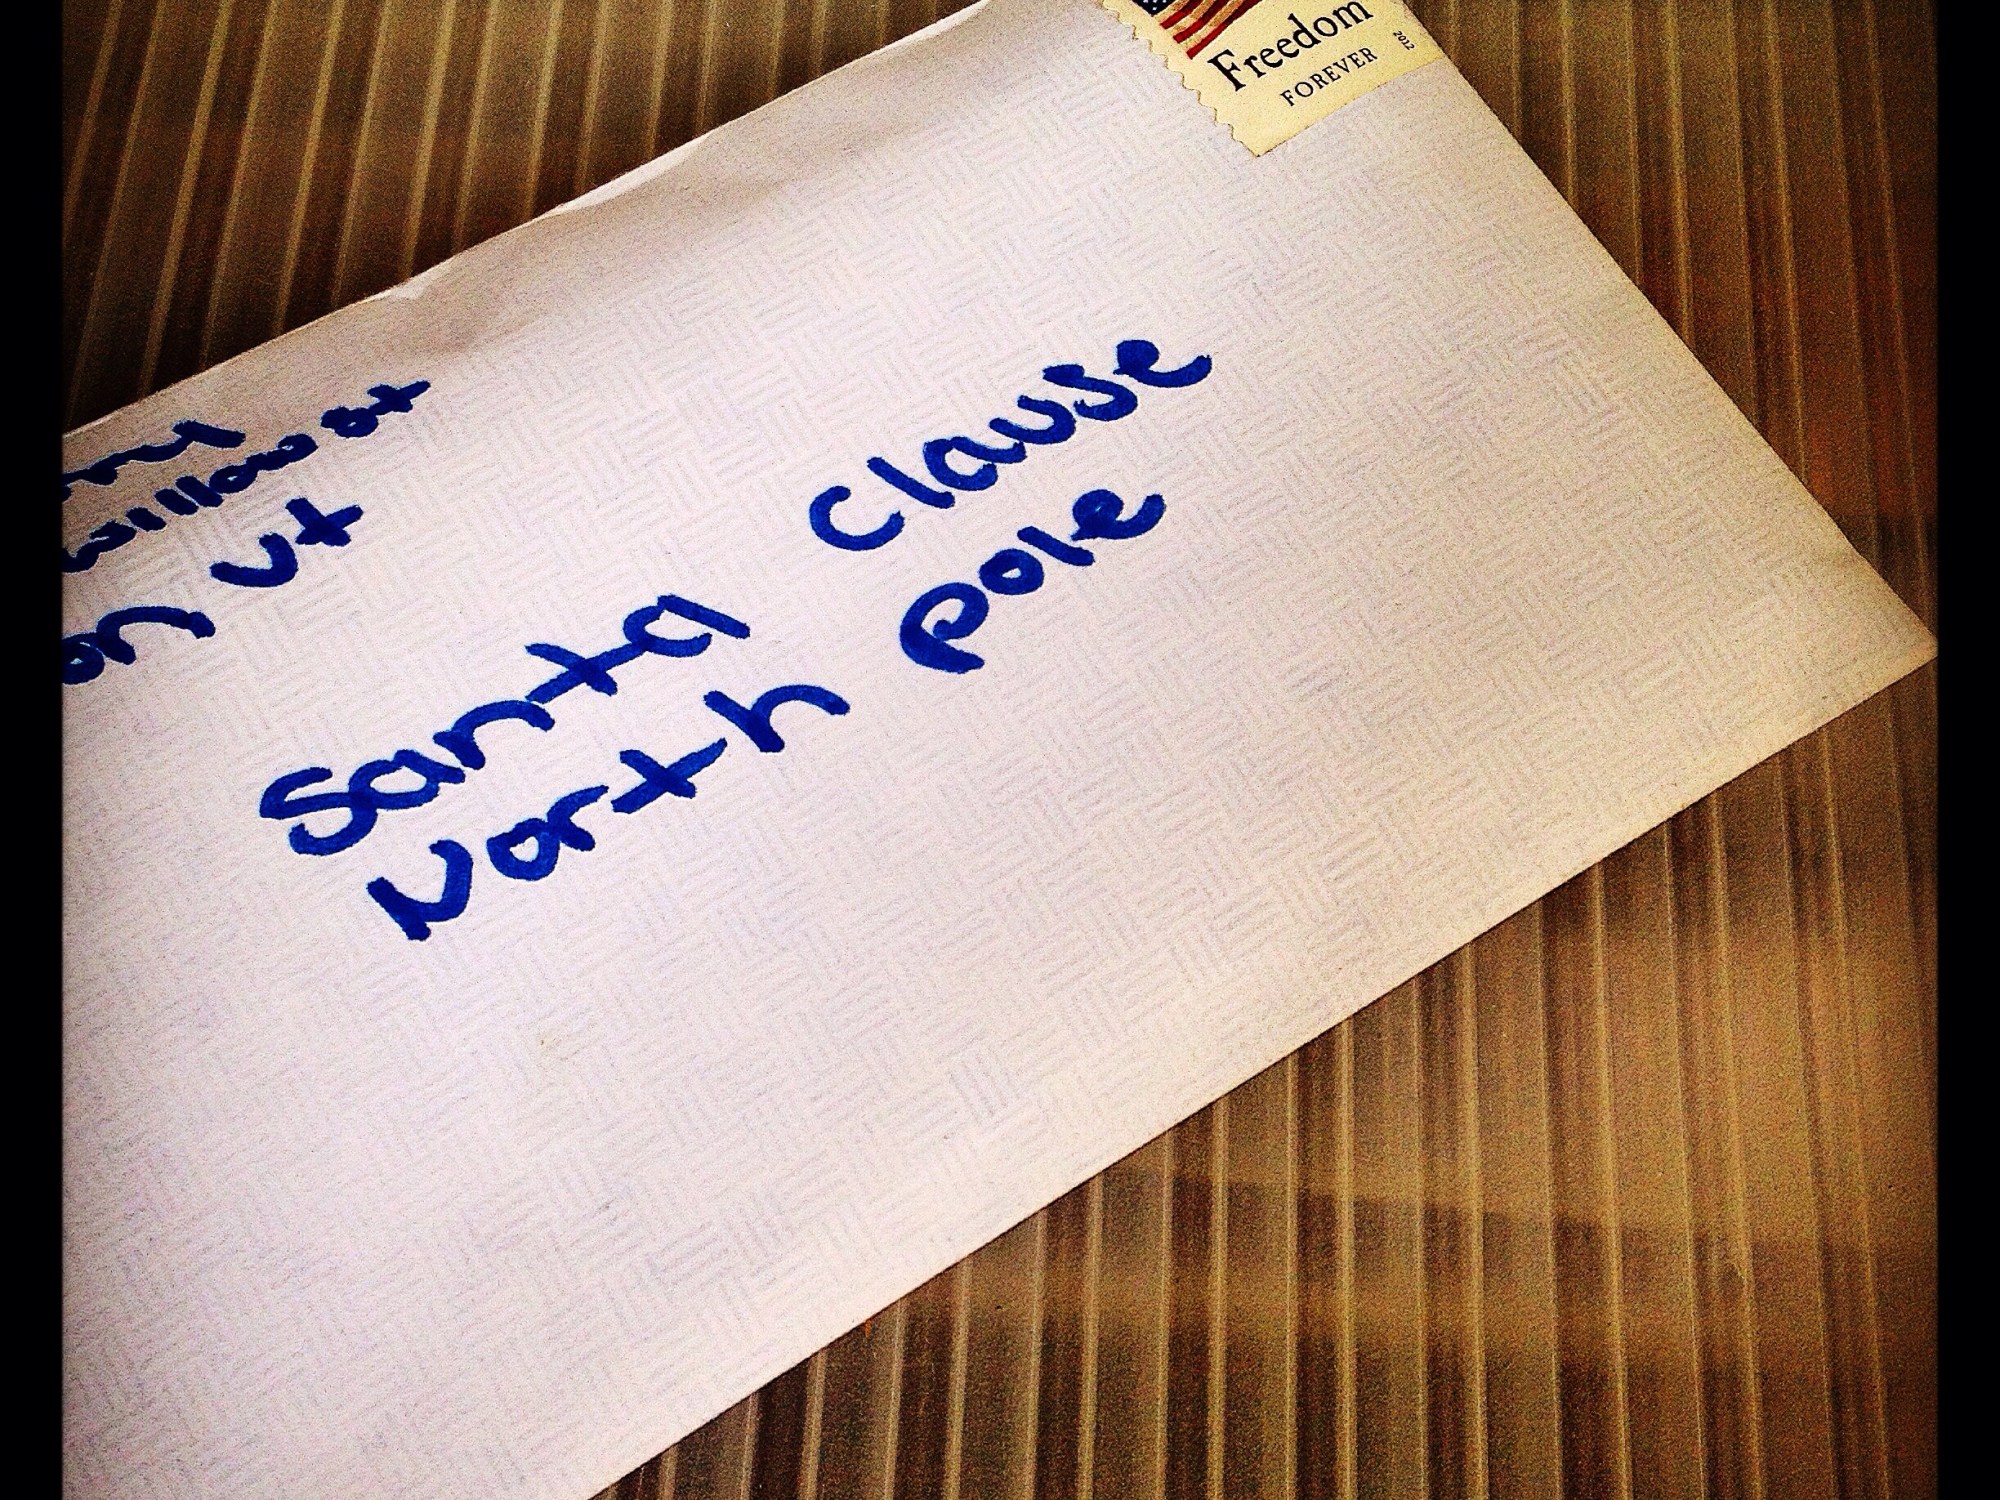 Freedom
FOREVER
2012
Vt
Santa Clause
North pole